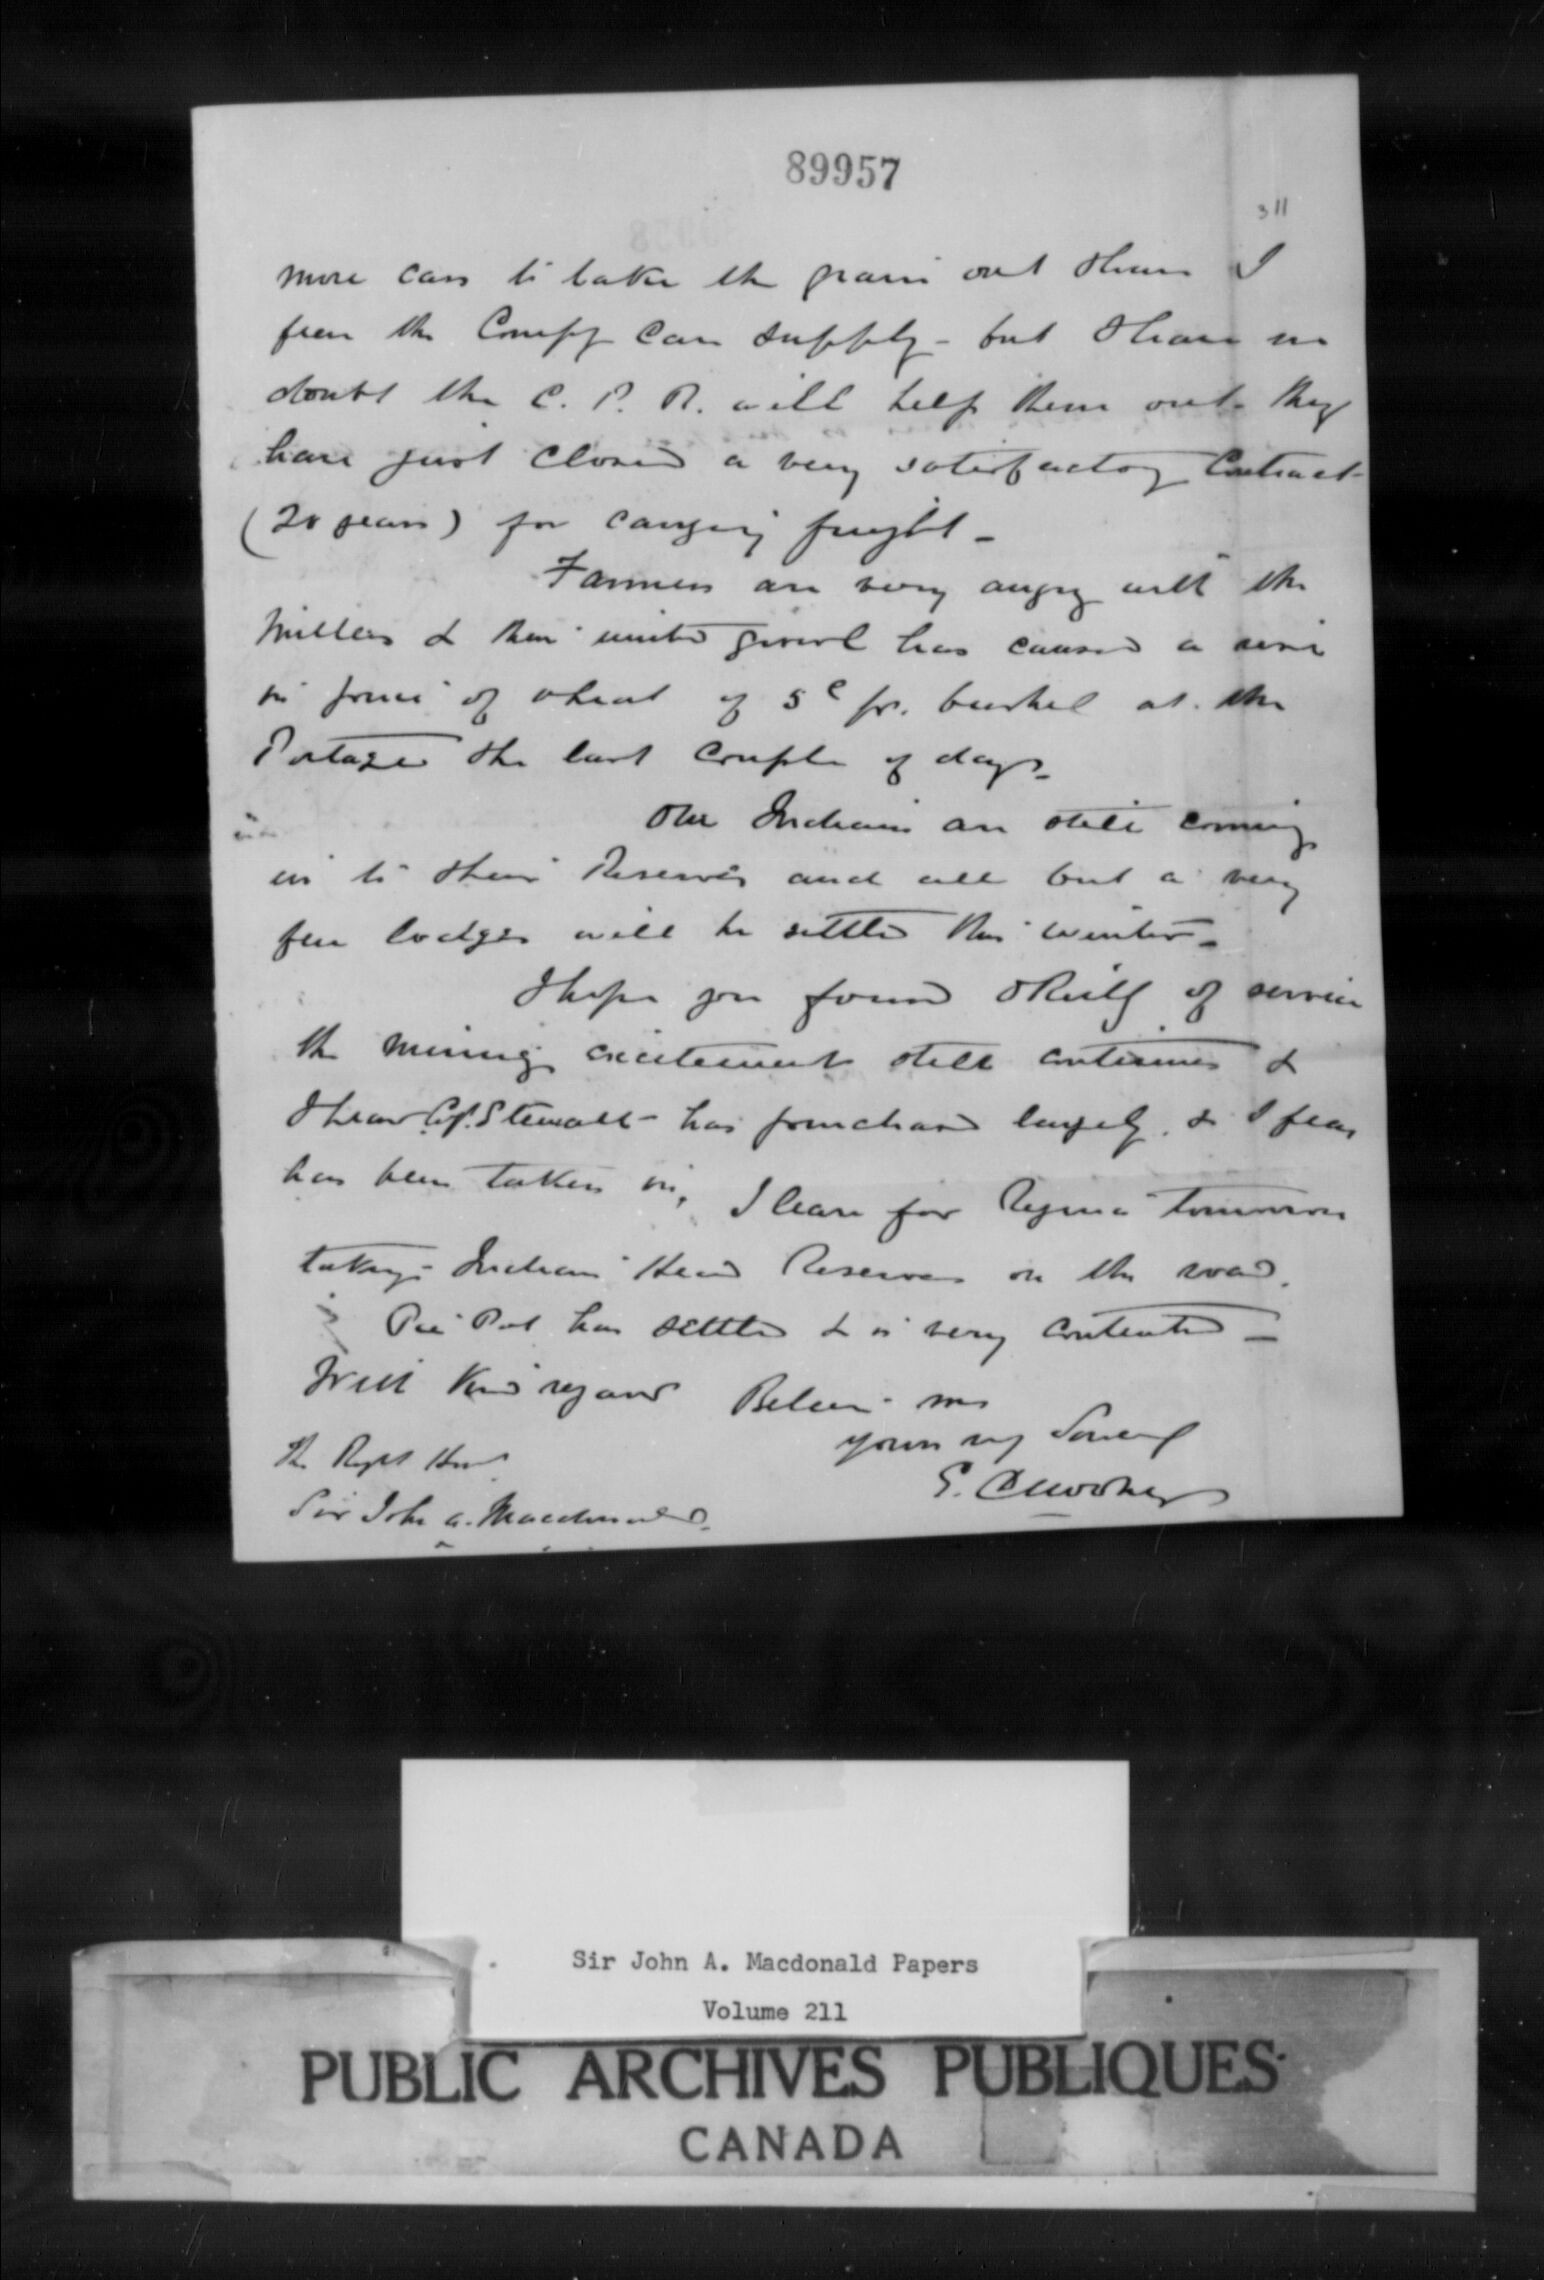 89957
311
more cars to take the grain out than I
fear the Compy can supply - but I have no
doubt the C. P. R. will help them out. they
have just closed a very satisfactory Contract -
(20 years) for carrying freight -
Farmers are very angry with the
Millers & their united has caused a rise
in price of wheat of 5c pr. bushel at the
Portage the last couple of days -
The Indians are still coming
in to their Reserves and all but a very
few lodges will be settled this winter -
I hope you found of service
the mining excitement still continues &
I hear Stewart - has purchased largely. & I fear
has been taken in. I leave for Regina tomorrow
taking Indian Head Reserves on the road.
Pie Pot has settled & is very contented -
With kind regards Believe me
yours very Sincerely
E. Dewdney
The Right Hon
Sir John A. Macdonald
Sir John A. Macdonald Papers
Volume 211
PUBLIC ARCHIVES PUBLIQUES
CANADA